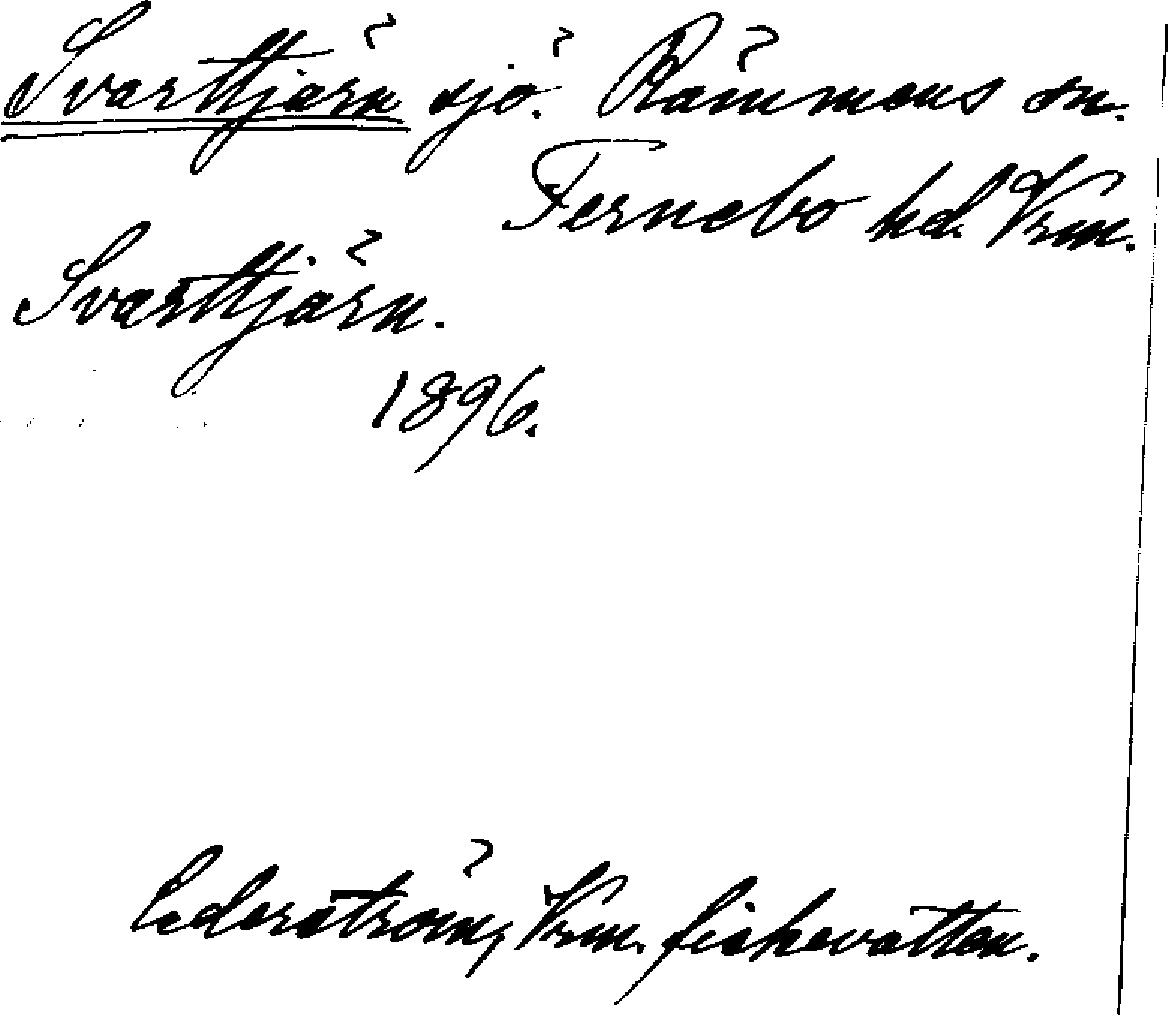 Svarttjärn sjö. Rämmens sn.
Fernebo hd. Vrm.
Svarttjärn.
1896.
Cederström, Vrm. fiskevatten.